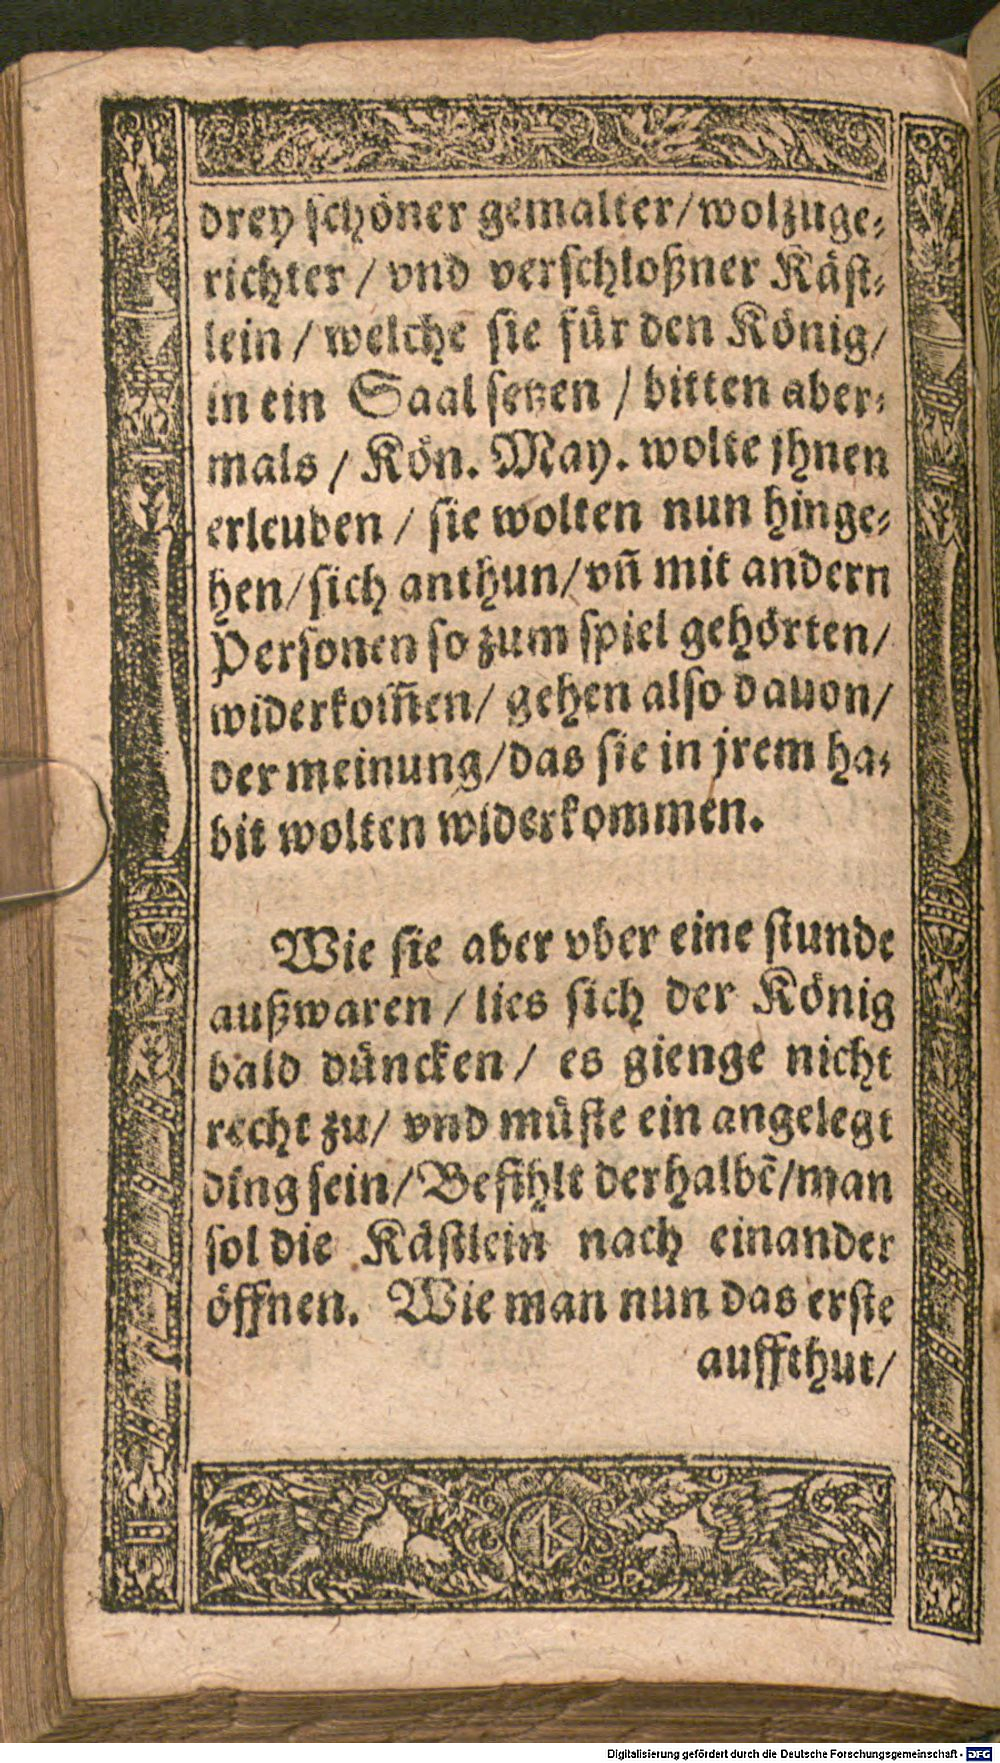 drey schöner gemalter/wolzuge⸗
richter / vnd verschloßner Käst⸗
lein / welche sie für den König/
in ein Saal setzen / bitten aber⸗
mals / Kön. May. wolte jhnen
erleuben / sie wolten nun hinge⸗
hen/sich anthun/vñ mit andern
Personen so zum spiel gehörten/
widerkom̃en/ gehen also dauon/
der meinung/das sie in jrem ha⸗
bit wolten widerkommen.
Wie sie aber vber eine stunde
außwaren / lies sich der König
bald düncken / es gienge nicht
recht zu/ vnd müste ein angelegt
ding sein/ Befihlt derhalbẽ/man
sol die Kästlein nach einander
öffnen. Wie man nun das erste
auffthut/
Digitalisierung gefördert durch die Deutsche Forschungsgemeinschaft - DFG